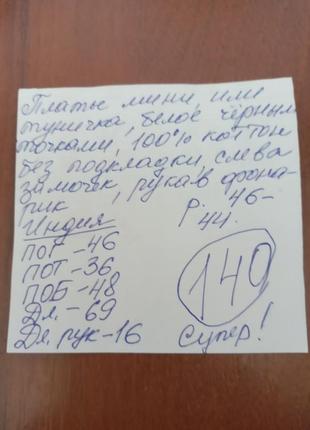 Платье мини, или
туничка, белое чёрным
точками, 100% коттон
без подкладки, слева
замочек, рукав фона-
рик
Индия
Р. 46-
44.
ПОГ-46
ПОТ-36
ПОБ-48
Дл.-69
Дл. рук-16
140
Супер!